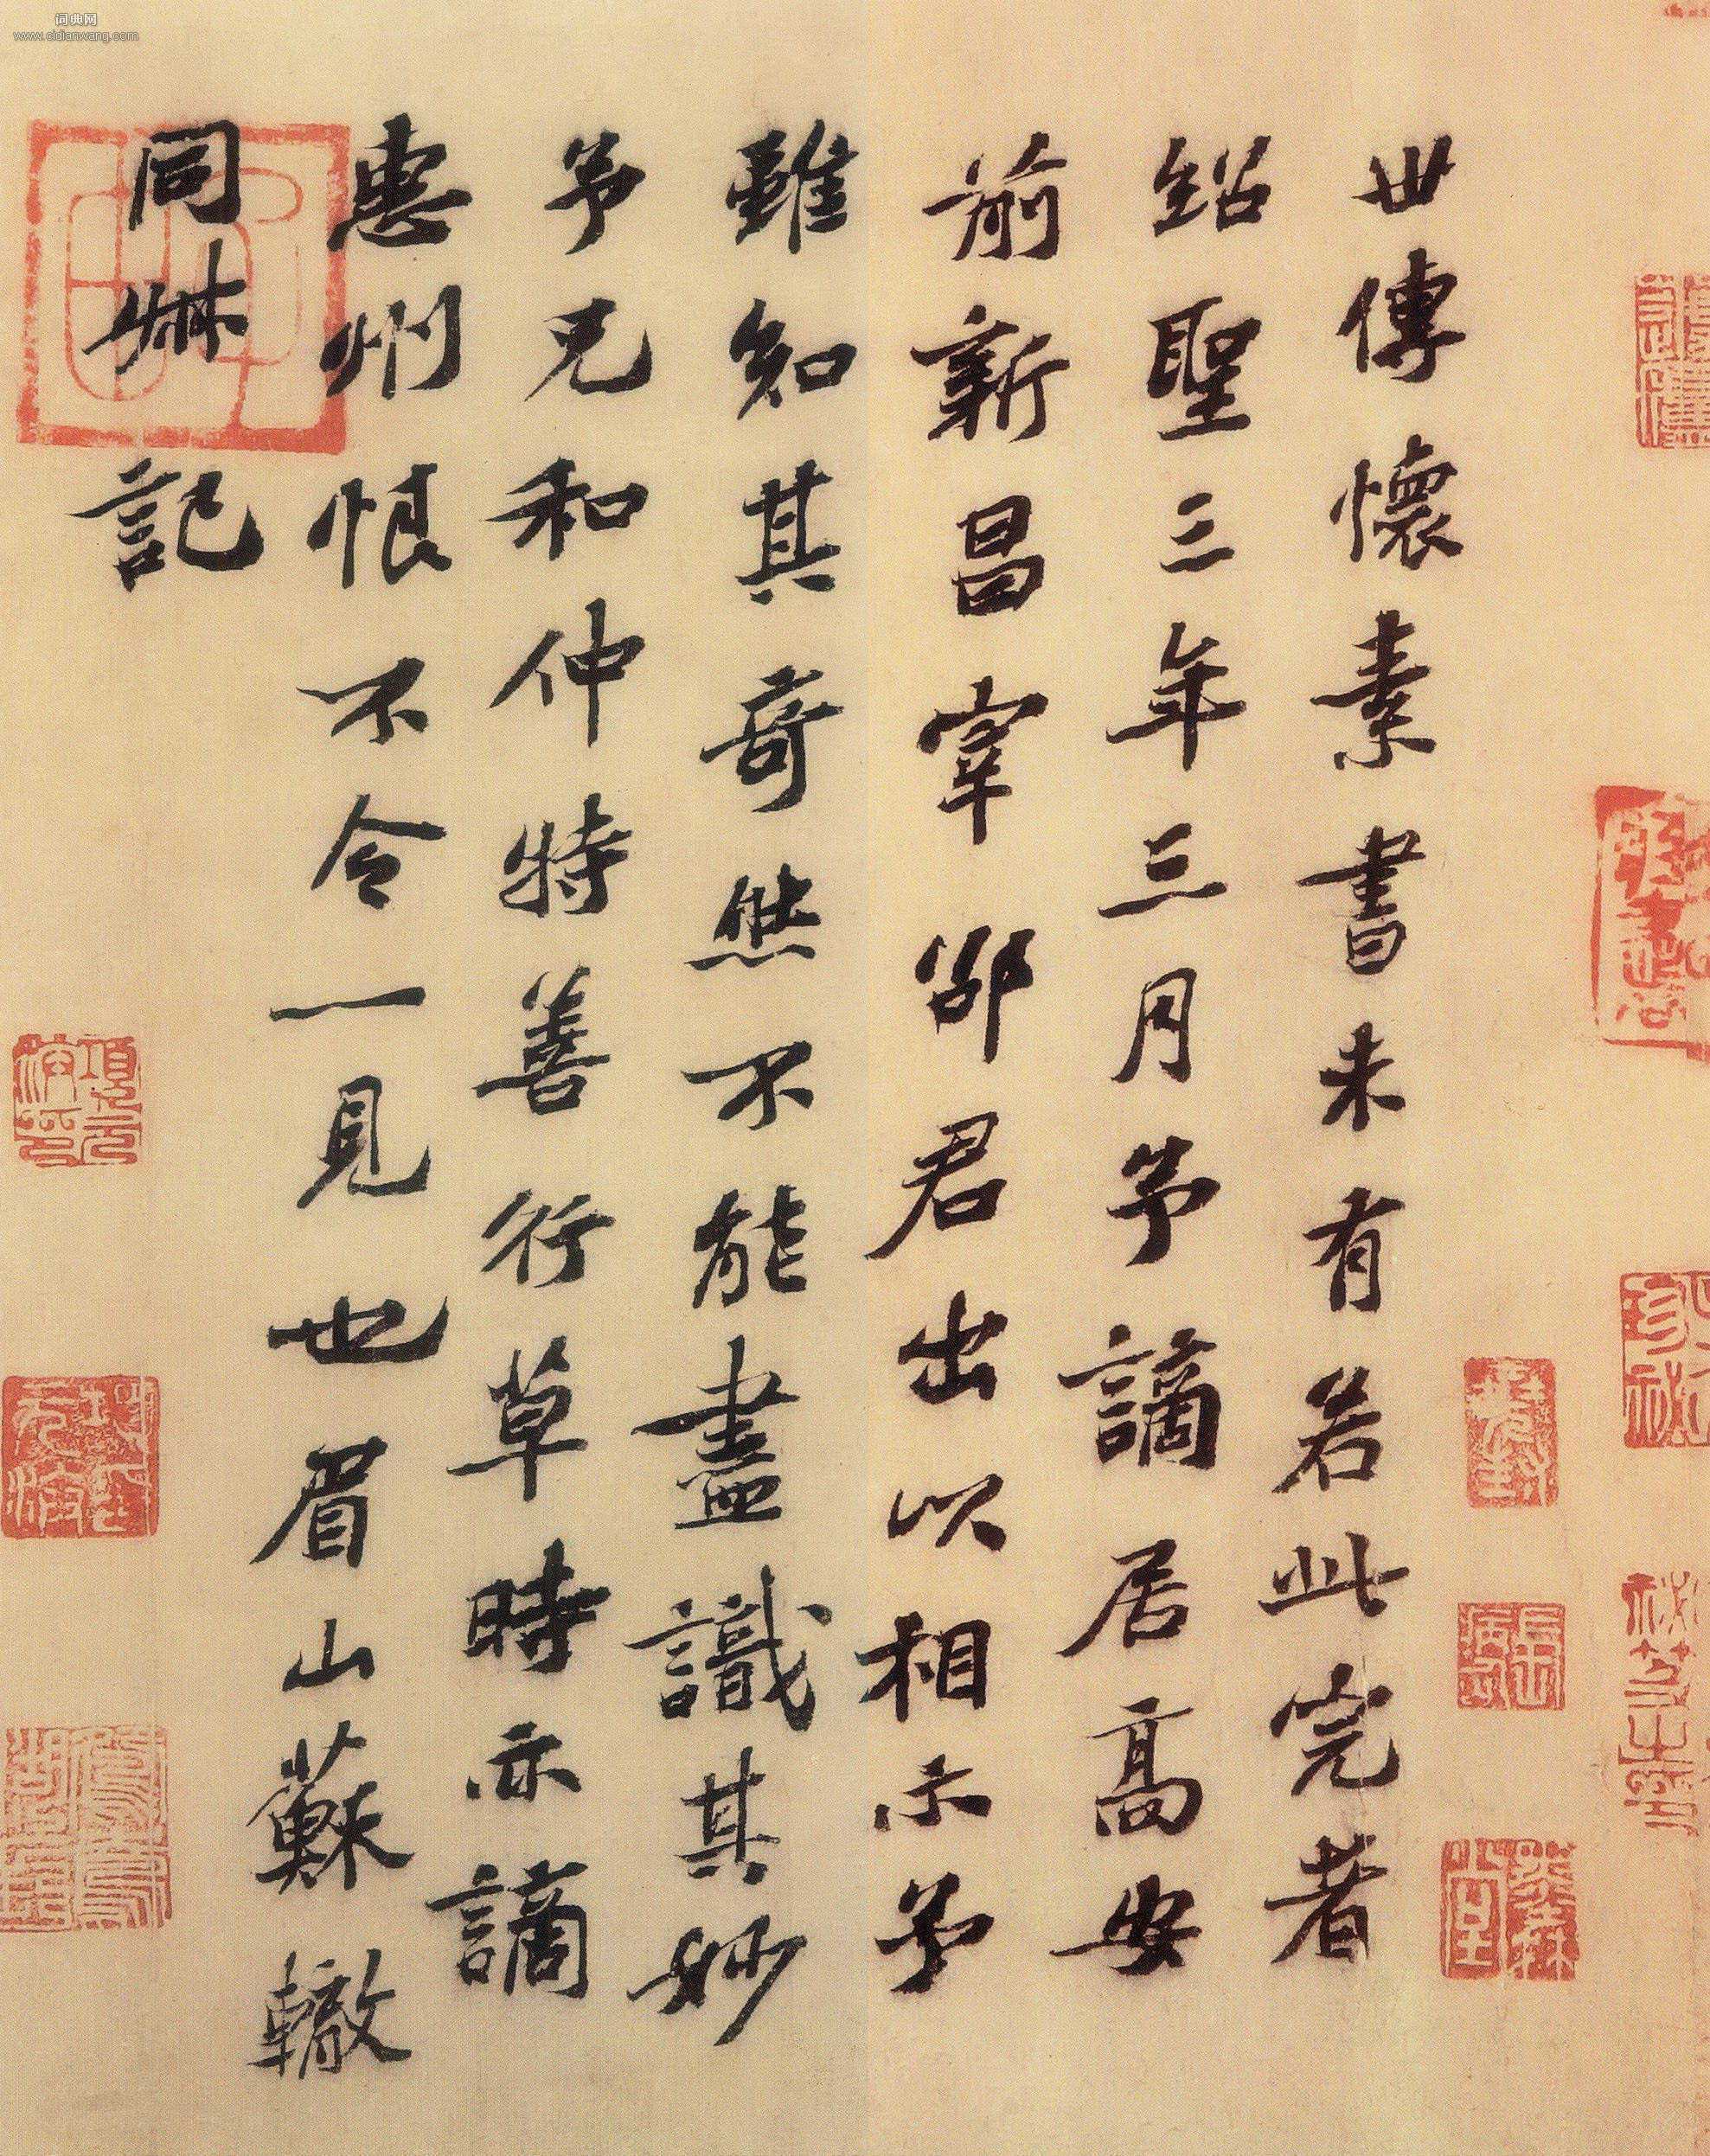 词典网
www.cidianwang.com
世傳懷素書未有若此完者
紹聖三年三月予謫居高安
前新昌宰邵君出以相示予
雖知其奇然不能盡識其妙
予兄和仲特善行草時亦謫
惠州恨不令一見也眉山蘇轍
同叔記